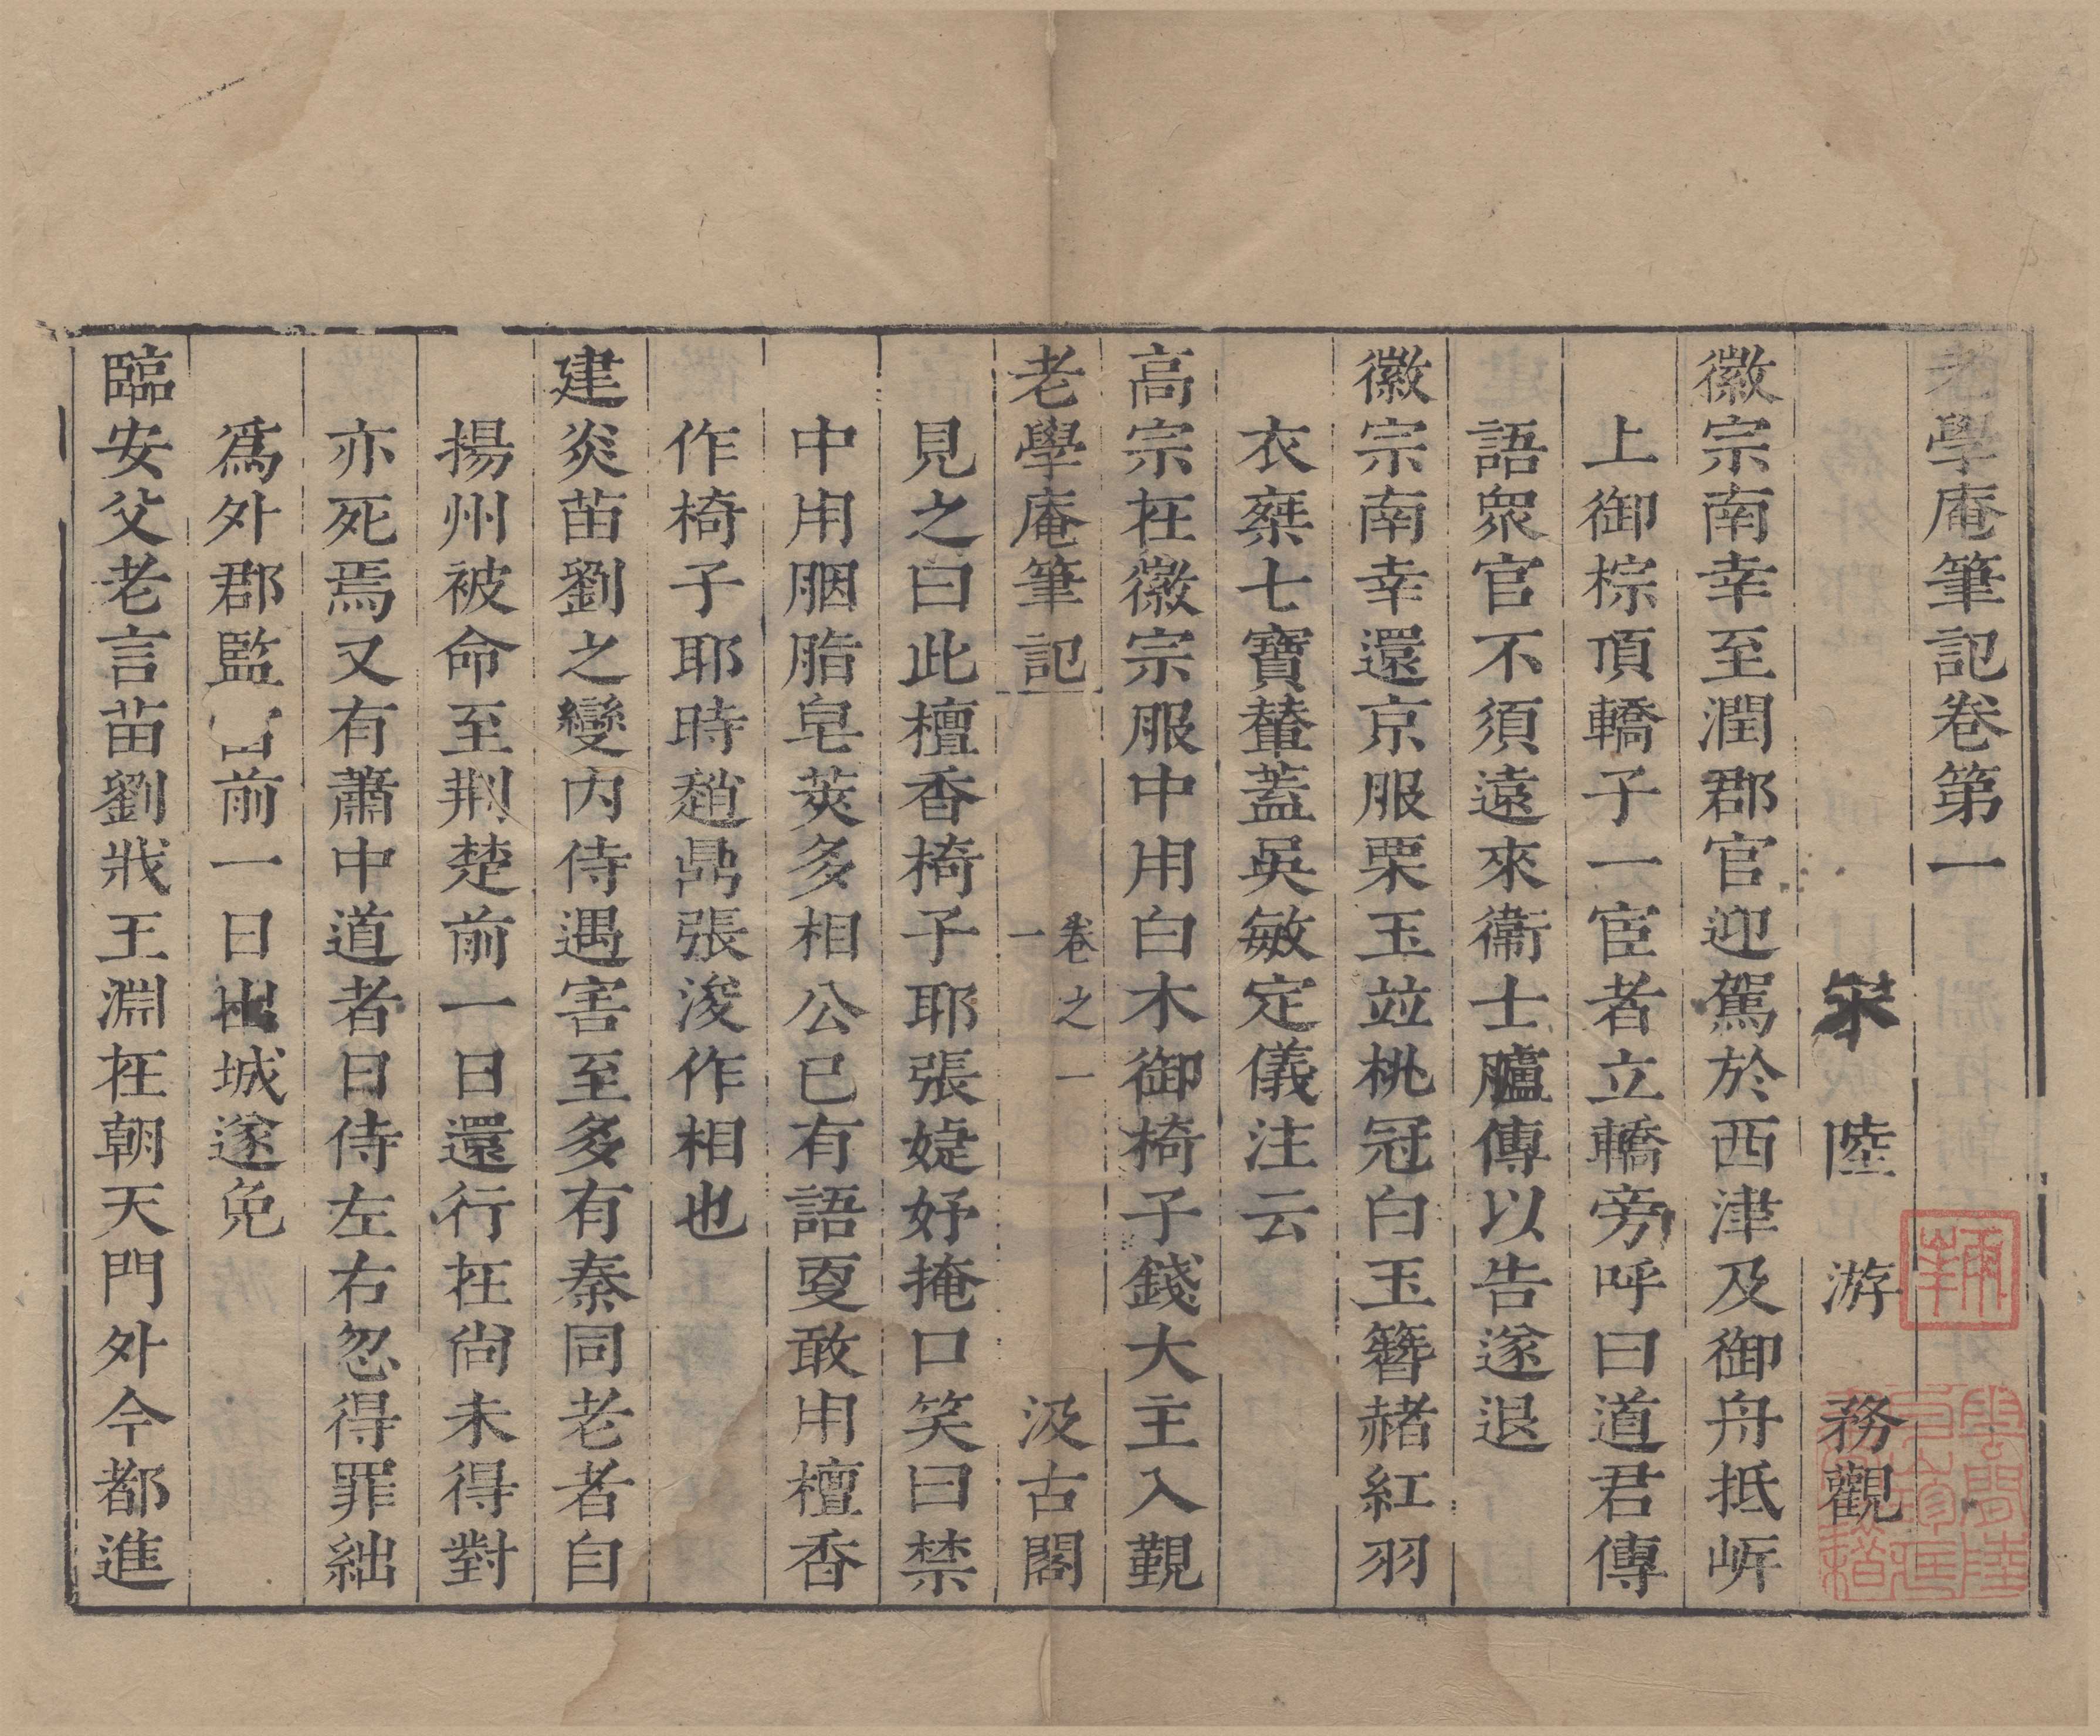 老學庵筆記卷第一
宋 陸 游 務觀
徽宗南幸至潤郡官迎駕於西津及御舟抵岍
上御棕頂轎子一宦者立轎旁呼曰道君傳
語衆官不須遠來衞士臚傳以告遂退
徽宗南幸還京服栗玉竝桃冠白玉簪赭紅羽
衣椉七寶輦蓋吳敏定儀注云
高宗在徽宗服中用白木御椅子錢大主入覲
老學庵筆記 卷之一 一 汲古閣
見之曰此檀香椅子耶張婕妤掩口笑曰禁
中用胭脂皂莢多相公已有語更敢用檀香
作椅子耶時趙鼎張浚作相也
建炎苗劉之變內侍遇害至多有秦同老者自
揚州被命至荆楚前一日還行在尙未得對
亦死焉又有蕭中道者日侍左右忽得罪絀
爲外郡監官前一日出城遂免
臨安父老言苗劉戕王淵在朝天門外今都進